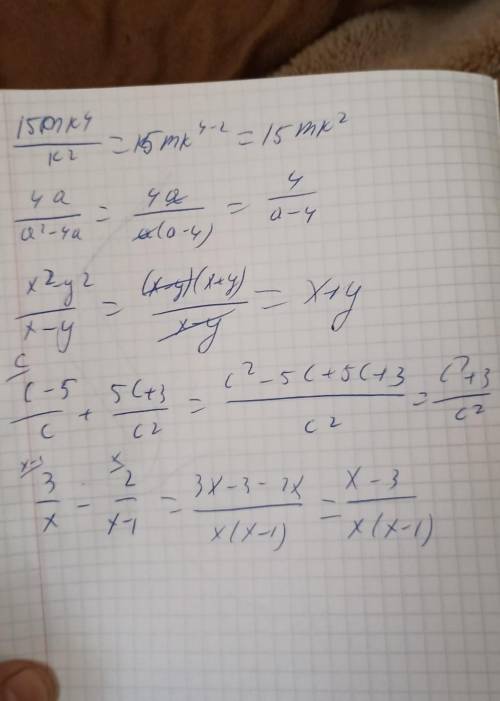 15mk⁴/k² = 15mk⁴⁻² = 15mk²
4a/a²-4a = 4a/a(a-4) = 4/a-4
x²-y²/x-y = (x-y)(x+y)/x-y = x+y
c
c-5/c + 5c+3/c² = c²-5c+5c+3/c² = c²+3/c²
x-1 x
3/x - 2/x-1 = 3x-3-2x/x(x-1) = x-3/x(x-1)